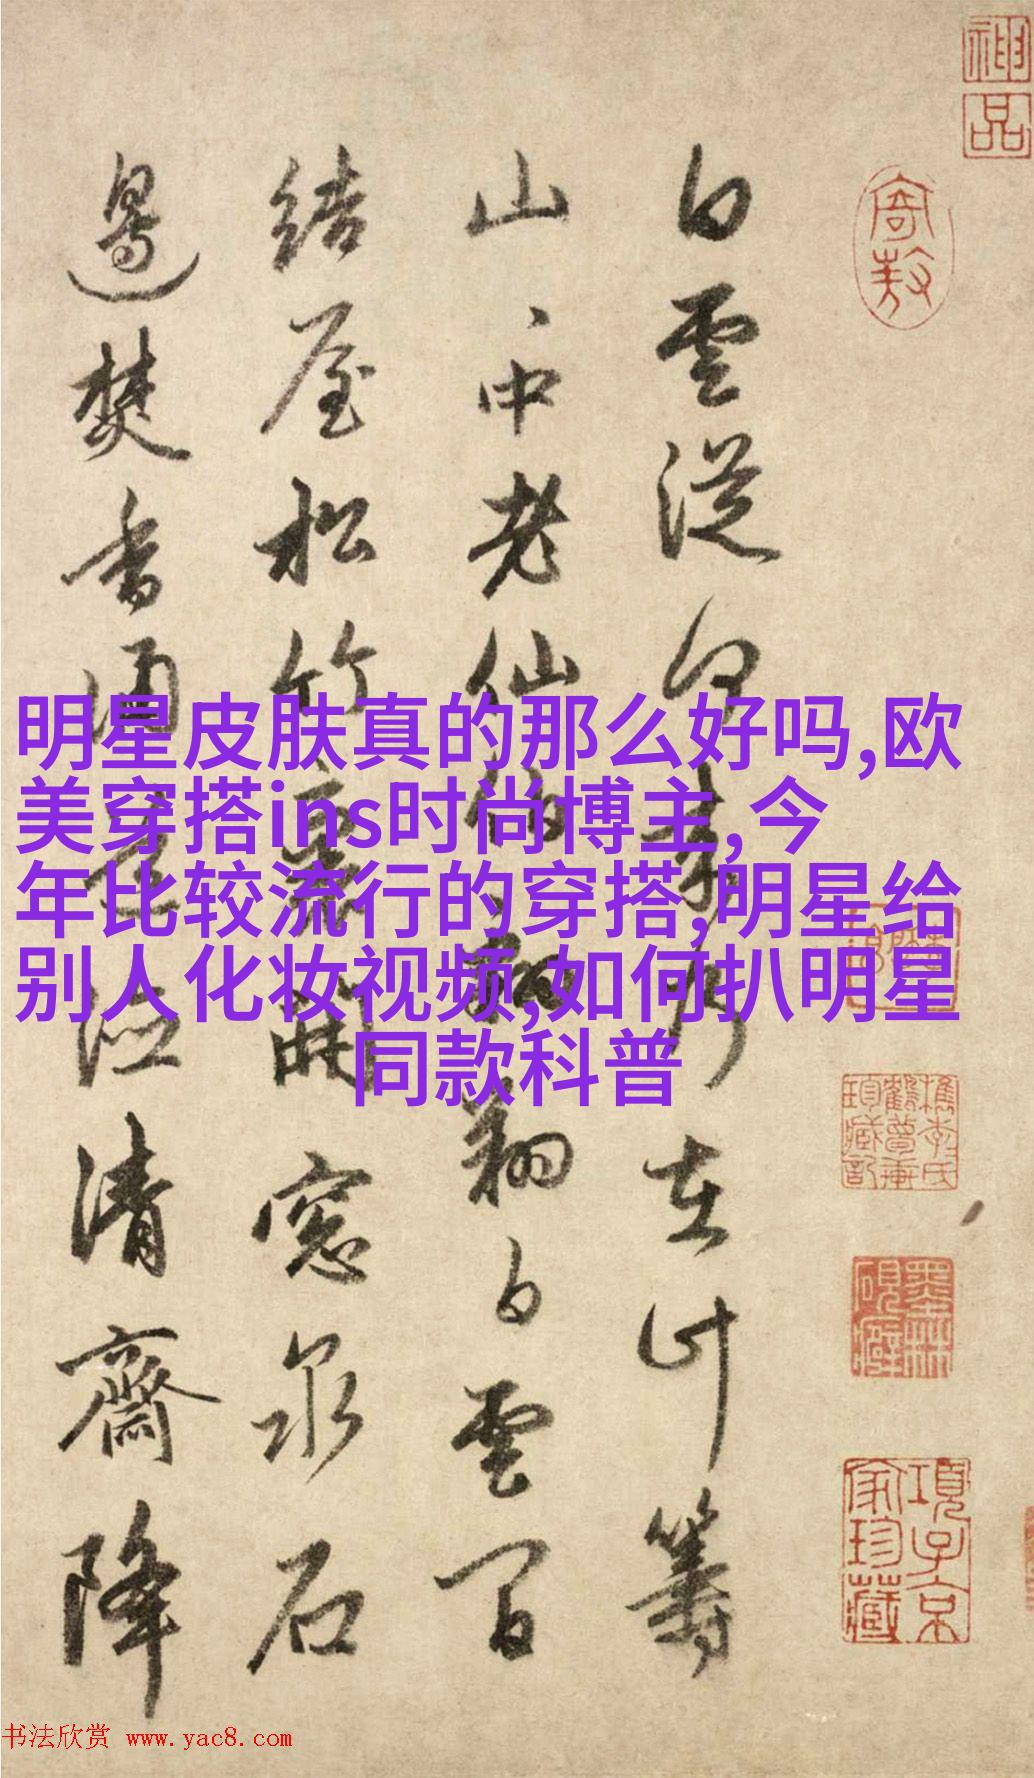 神品
白雲從
來
在
山中老仙
翔白雲間
結屋松竹裏開窓泉石
邊焚香
清齋降
項子京家珍藏
明星皮肤真的那么好吗,欧
美穿搭ins时尚博主,今
年比较流行的穿搭,明星给
别人化妆视频,如何扒明星
同款科普
书法欣赏 www.yac8.com